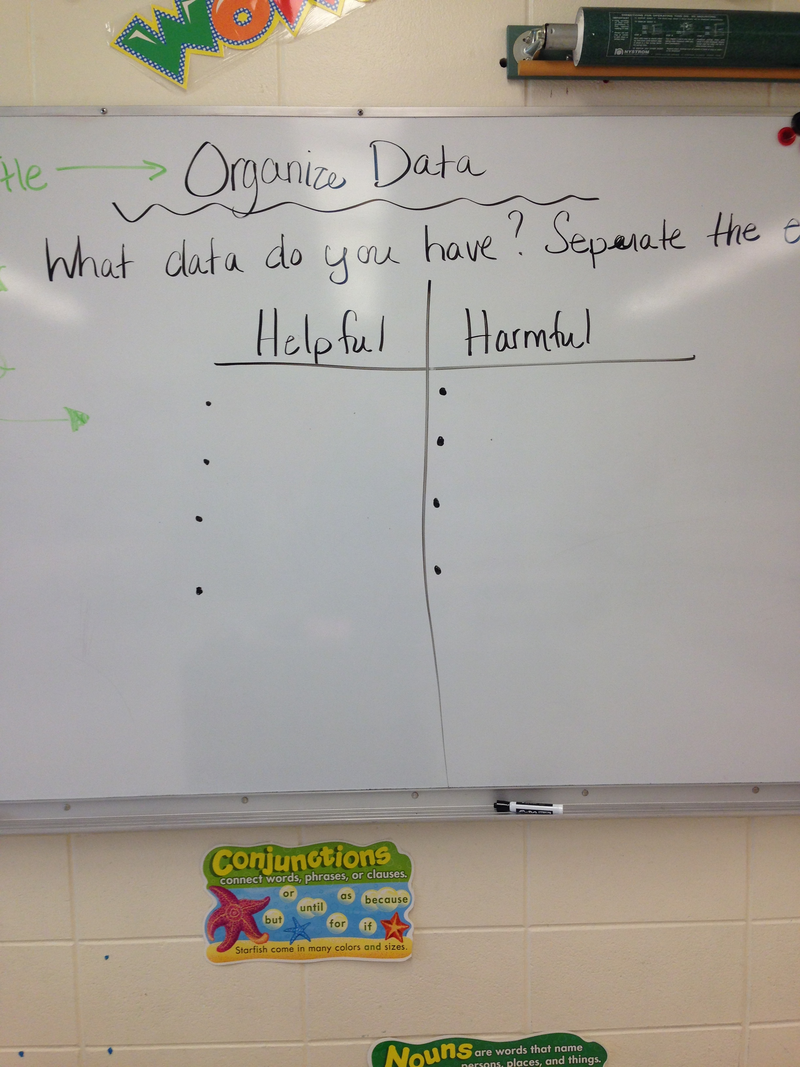 WOW
NYSTROM
tle → Organize Data
What data do you have? Separate the e
Helpful Harmful
•
•
•
•
•
•
•
•
Conjunctions
connect words, phrases, or clauses.
or as because
until
but for if
Starfish come in many colors and sizes.
Nouns are words that name
persons, places, and things.